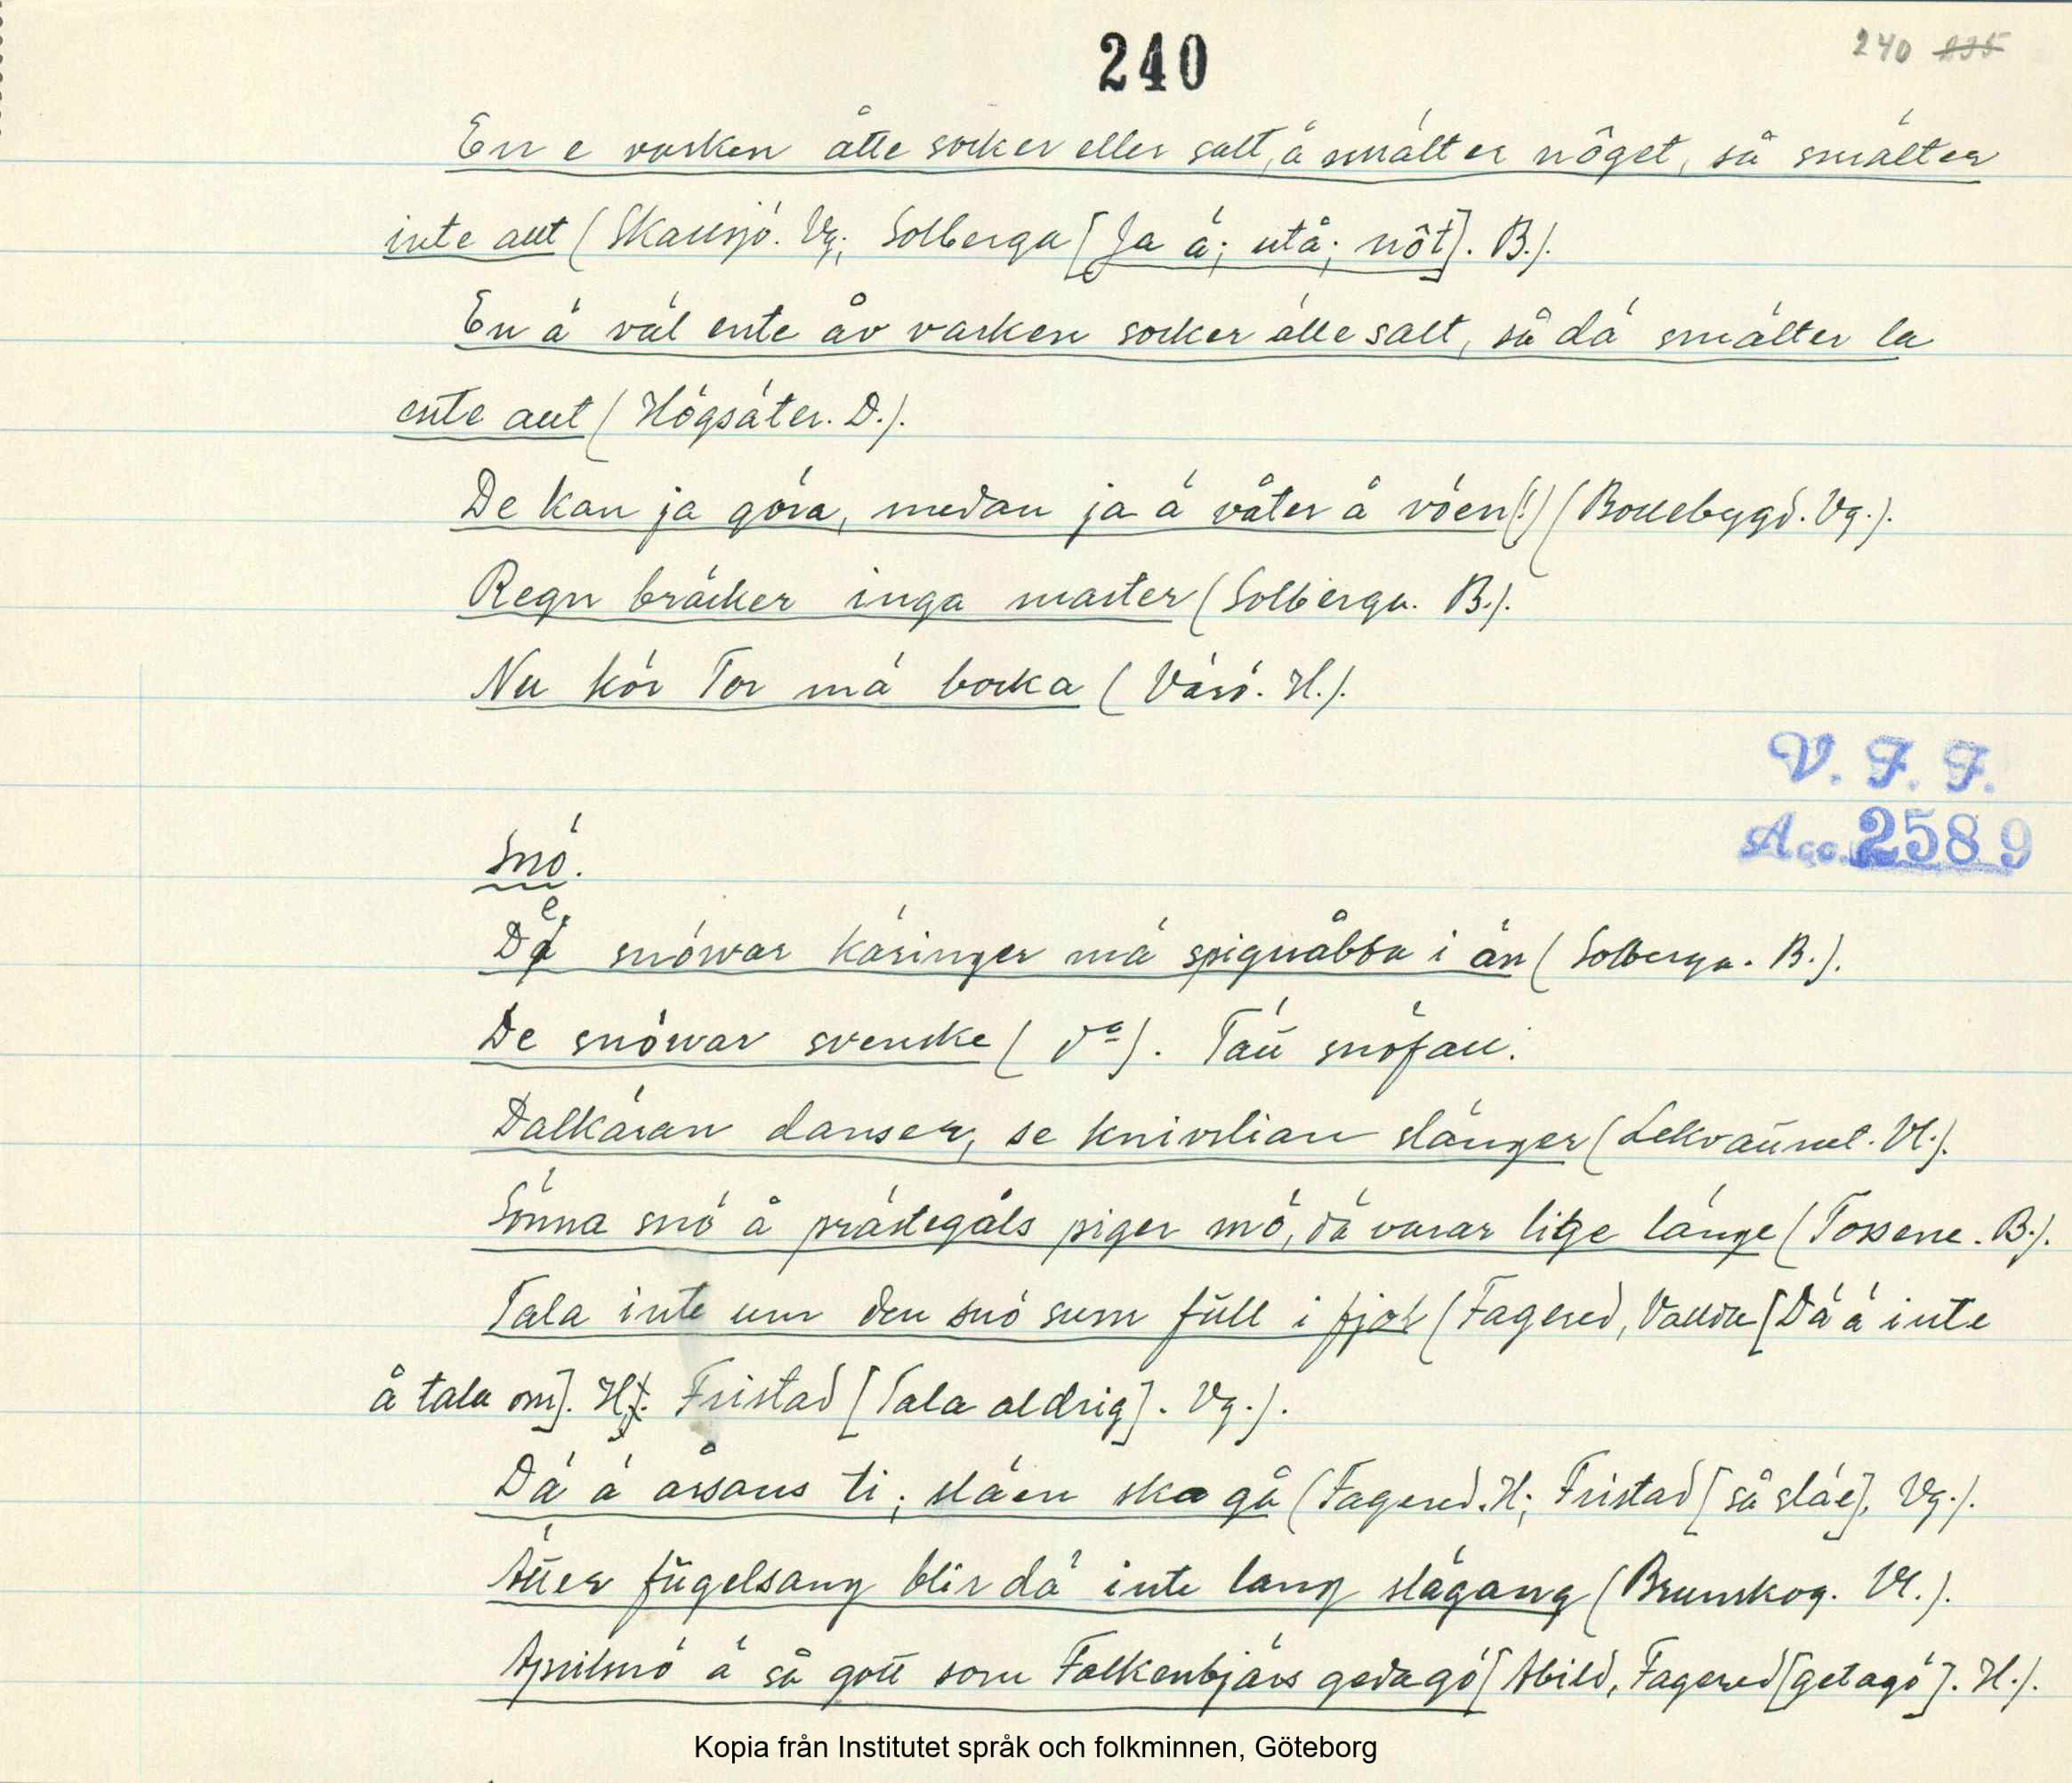 240
240 235
En e varken ätte socker eller salt, å smälter nôget, så smälter
inte aut (Skallsjö. Vg; Solberga [Ja ä; utå; nôt]. B.).
En ä väl ente åv varken socker älle salt, så dä smälter la
ente aut (Högsäter. D.).
De kan ja göra, medan ja ä våter å vöen(!) (Bollebygd. Vg.).
Regn bräcker inga master (Solberga. B.).
Nu kör Tor mä bocka (Värö. H.).
V. F. F.
Acc. 2589
Snö.
De snöwar käringer mä spignabba i än (Solberga. B.).
De snöwar svenske (do). Tät snöfall.
Dalkäran danser, se knivslian slänger (Lekvattnet. Vl.).
Sönna snö å prästegåls piger mö, dä varar lige länge (Tossene. B.).
Tala inte um den snö sum full i fjol (Fagered, Vallda [Dä ä inte
å tala om]. H; Fristad [Tala aldrig]. Vg.).
Dä ä årsans ti, släen ska gå (Fagered. H; Fristad [så släe], Vg.).
Ätter fugelsang blir dä inte lang slägang (Brunskog. Vl.).
Aprilsnö ä så gott som Falkenbjärs gedagö [Abild, Fagered [getagö]. H.).
Kopia från Institutet språk och folkminnen, Göteborg